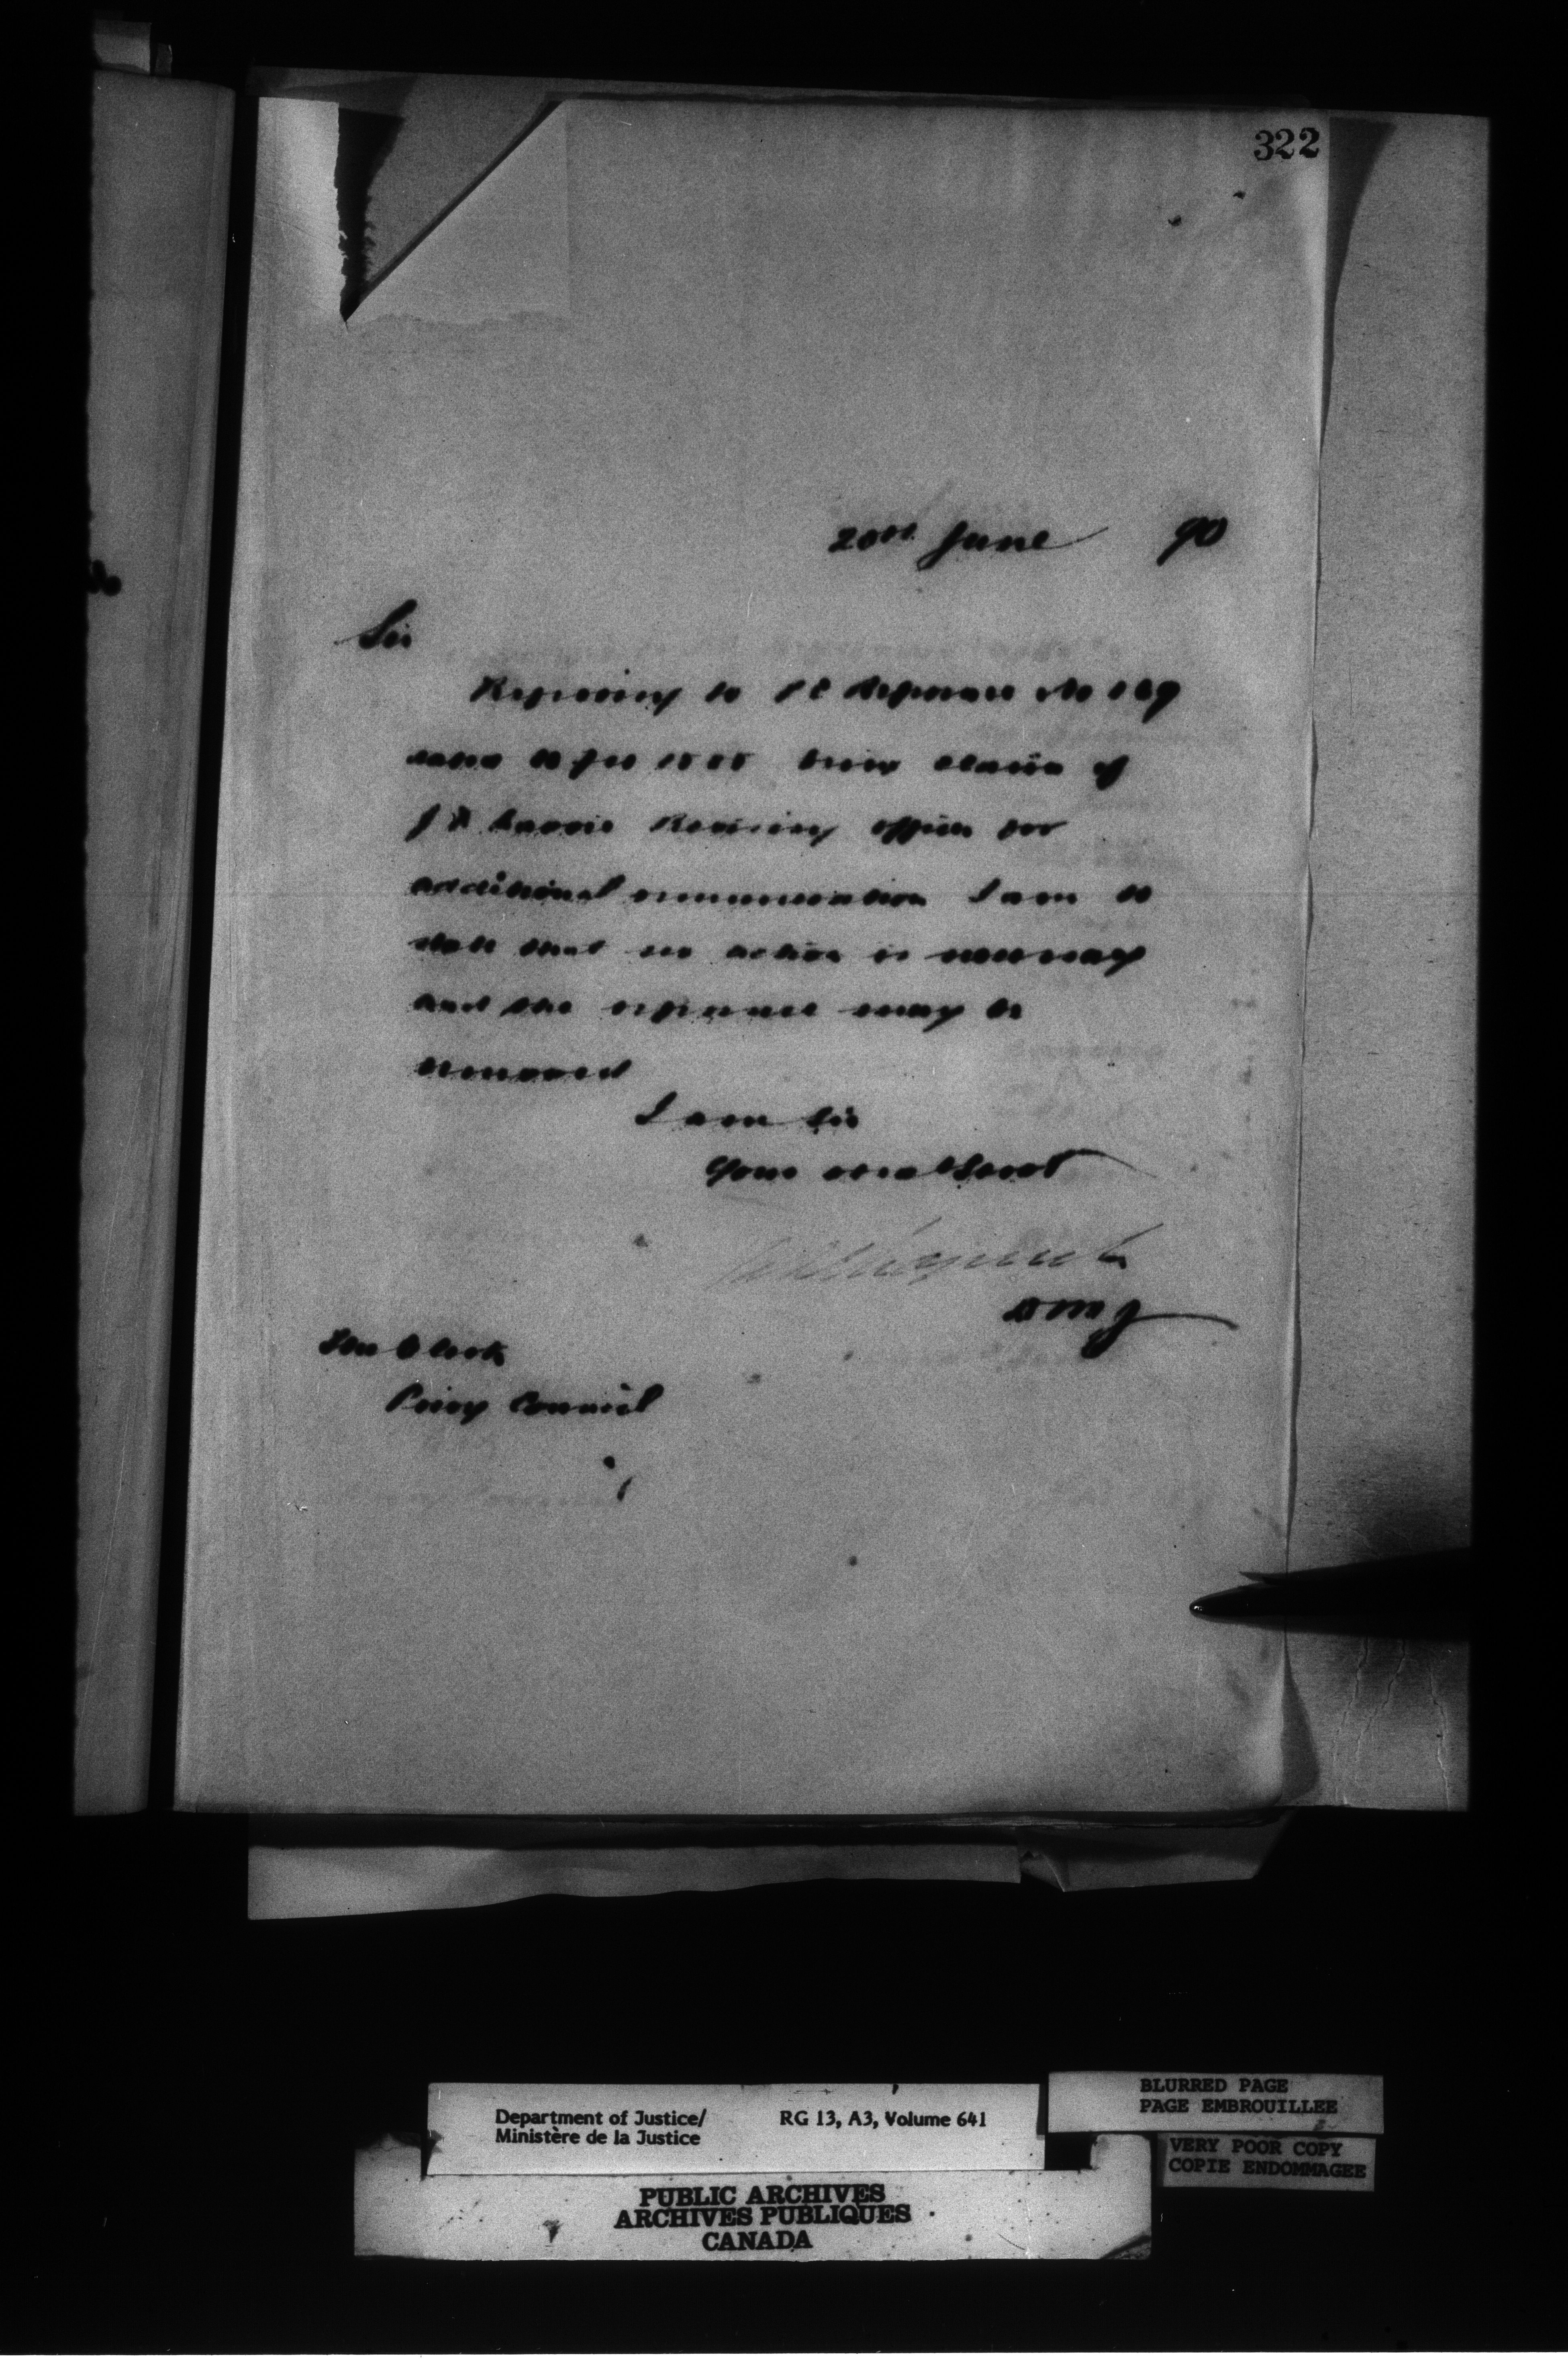 322
20th June 90
Sir
Referring to P C Reference No
being claim of
Revising officer for
additional remuneration I am to
state that no action is necessary
and the reference may be
removed
I am Sir
Your obedt Servt
DMJ
The Clerk
Privy Council
Department of Justice/ RG 13, A3, Volume 641
Ministère de la Justice
BLURRED PAGE
PAGE EMBROUILLEE
VERY POOR COPY
COPIE ENDOMMAGEE
PUBLIC ARCHIVES
ARCHIVES PUBLIQUES
CANADA